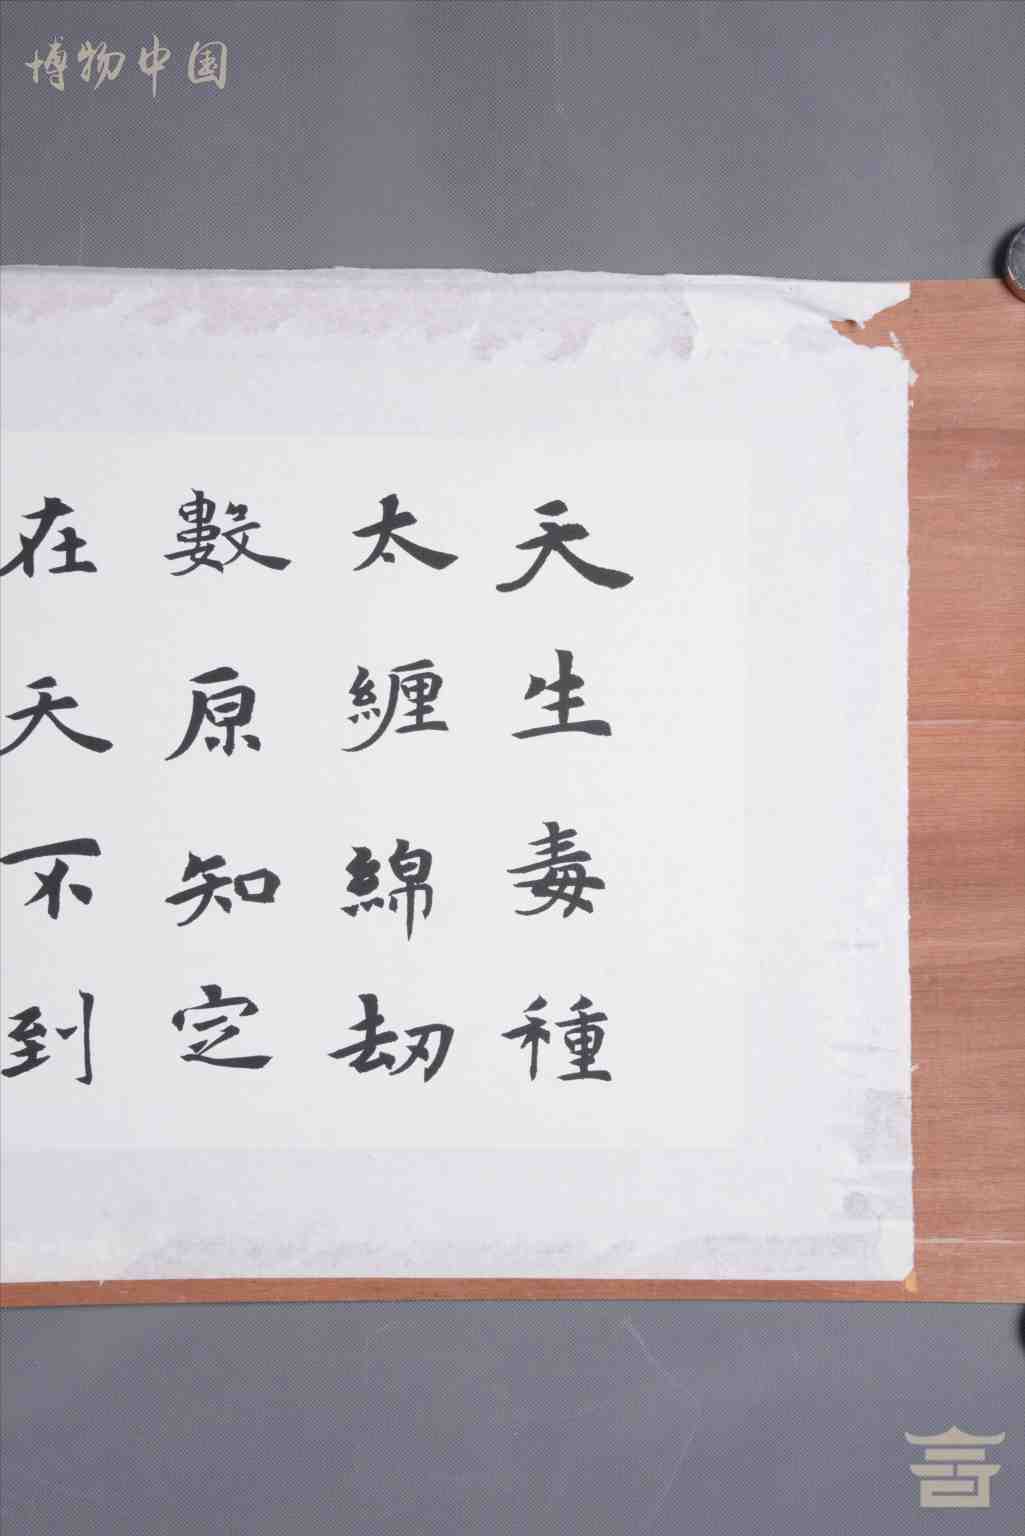 博物中国
天生毒種
太纏綿劫
數原知定
在天不到